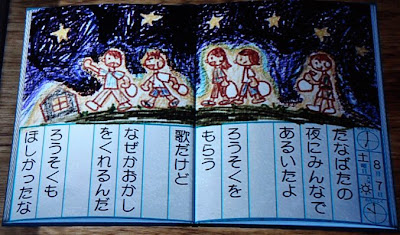 8月7日
土
たなばたの
夜にみんなで
あるいたよ
ろうそくを
もらう
歌だけど
なぜかおかし
をくれるんだ
ろうそくも
ほしかったな